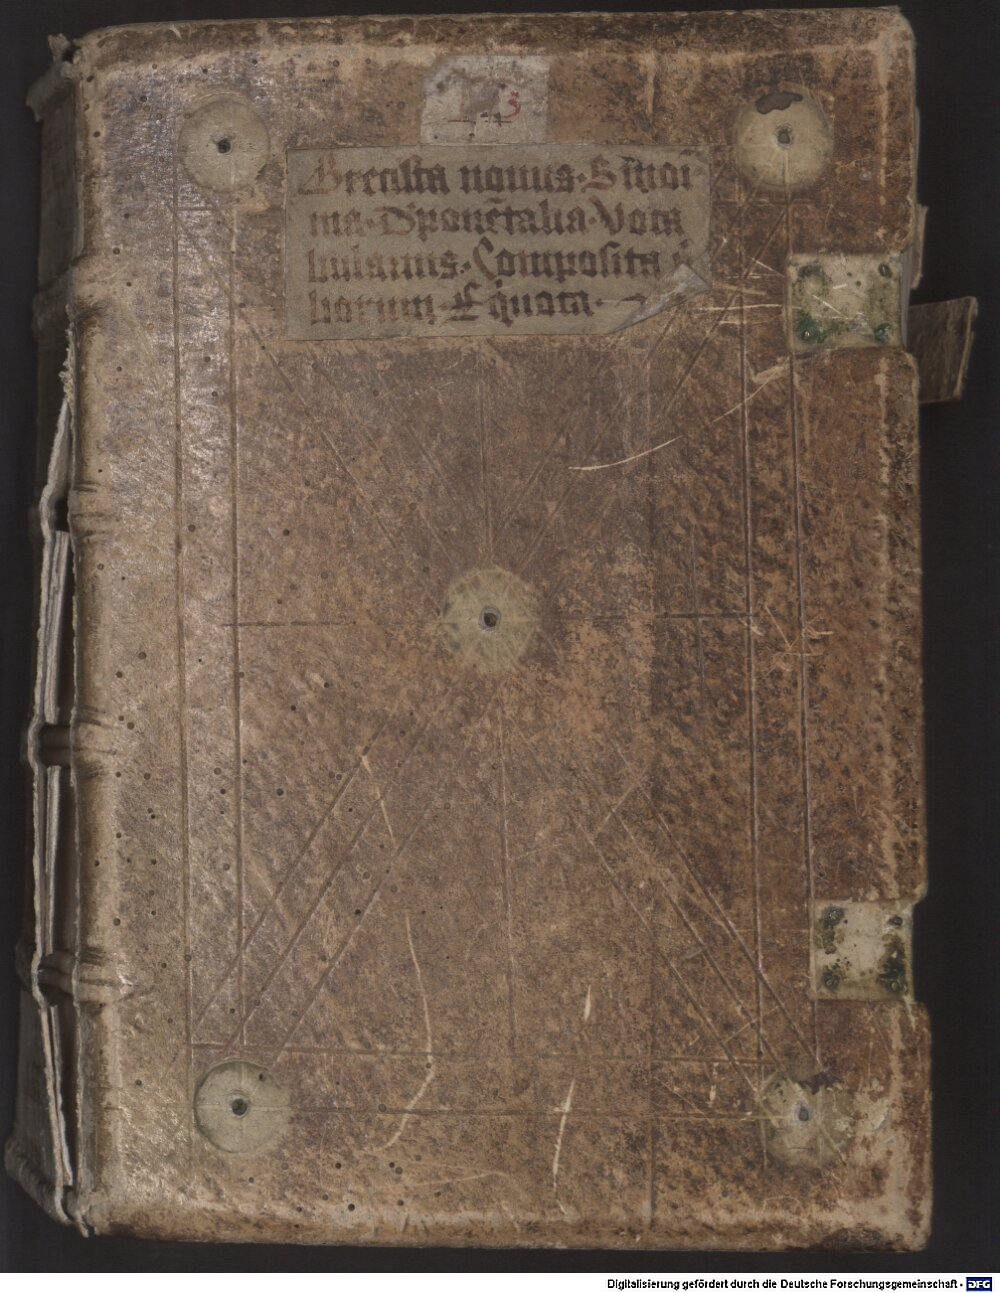 3
Grecista nouus · Sinoī
ma · Dῑponētalia · Voca
bularius · Composita
uerborum · Equoca ·
Digitalisierung gefördert durch die Deutsche Forschungsgemeinschaft - DFG